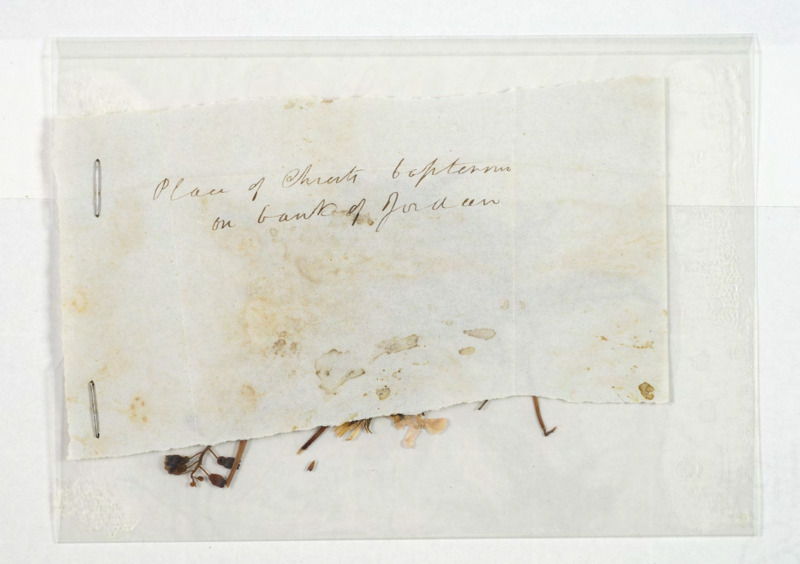 Place of Christs baptism
on bank of Jordan